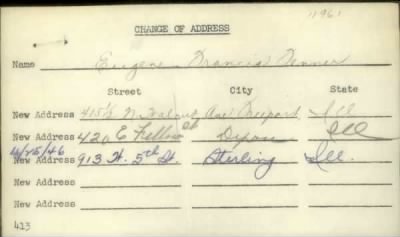 1961
CHANGE OF ADDRESS
Name Eugene Francis
Street City State
New Address 415½ N. Walnut Ave Freeport Ill
New Address 420 E. Fellows St Dixon Ill
4/25/46
New Address 913 W. 5th St. Sterling Ill.
New Address
New Address
413